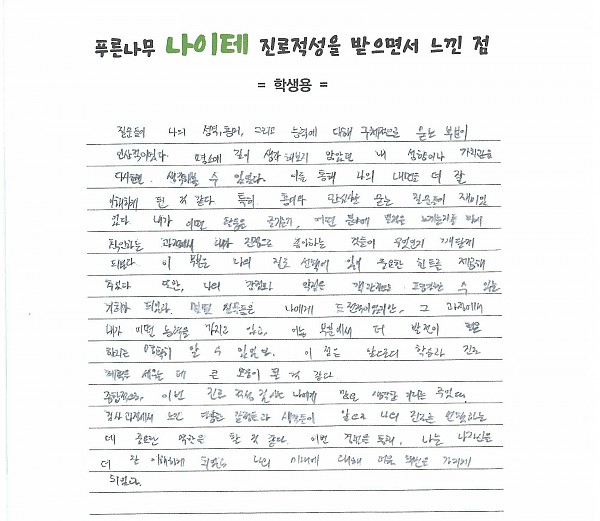 푸른나무 나이테 진로적성을 받으면서 느낀 점
= 학생용 =
질문들이 나의 성격, 흥미, 그리고 능력에 대해 구체적으로 묻는 부분이
인상적이었다. 평소에 깊이 생각해보지 않았던 내 성향이나 가치관을
다시한번 생각해볼 수 있었다. 이를 통해 나의 내면을 더 잘
이해하게 된 것 같다. 특히 흥미와 관심사를 묻는 질문들이 재미있
었다. 내가 어떤 활동을 즐기는지, 어떤 분야에 보람을 느끼는지를 다시
확인하는 과정에서 내가 진정으로 좋아하는 것들이 무엇인지 깨닫게
되었다. 이 부분은 나의 진로 선택에 있어 중요한 힌트를 제공해
주었다 또한, 나의 강점과 약점을 객관적으로 수 있는
기회가 되었다. 몇몇 질문들은 나에게 도전적이었지만, 그 과정에서
내가 어떤 능력을 가지고 있고, 어느 부분에서 더 발전이 필요
한지를 명확히 알 수 있었다. 이 점은 앞으로의 학습과 진로
계획을 세우는 데 큰 도움이 될 것 같다
종합적으로, 이번 진로 적성 검사는 나에게 많은 생각을 주었다.
검사 과정에서 느낀 다양한 감정들과 생각들이 앞으로 나의 진로를 선택하는
데 중요한 역할을 할 것 같다. 이번 경험을 통해, 나는 나 자신을
더 잘 이해하게 되었고 나의 미래에 대해 더욱 확신을 가지게
되었다.